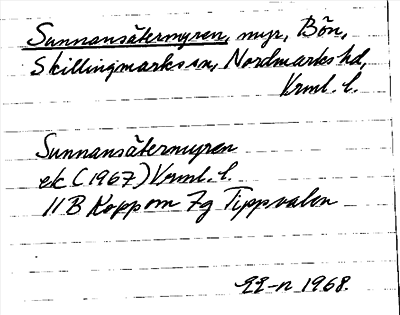 Sunnansätermyren, myr, Bön,
Skillingmarks sn, Nordmarks hd,
Vrml. l.
Sunnansätermyren
ek (1967) Vrml. l.
11B Koppom 7g Tippvalen
1968.